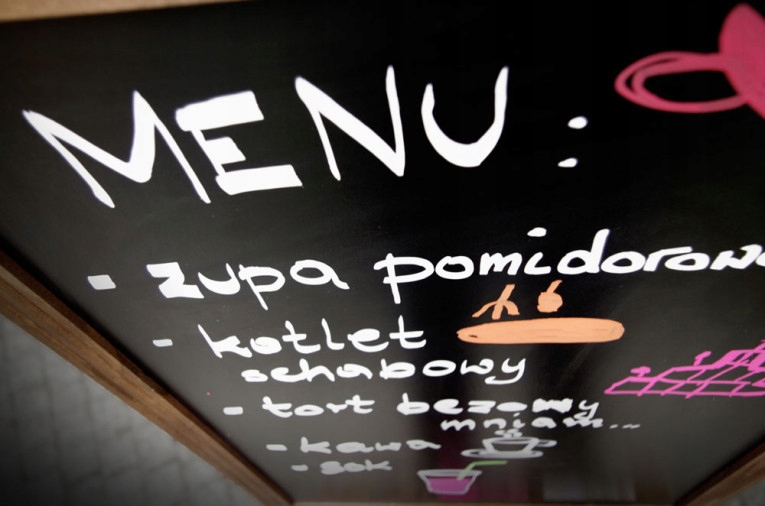 MENU:
- zupa pomidorow
- kotlet
schabowy
- tort bezowy
mniam...
- kawa
- sok